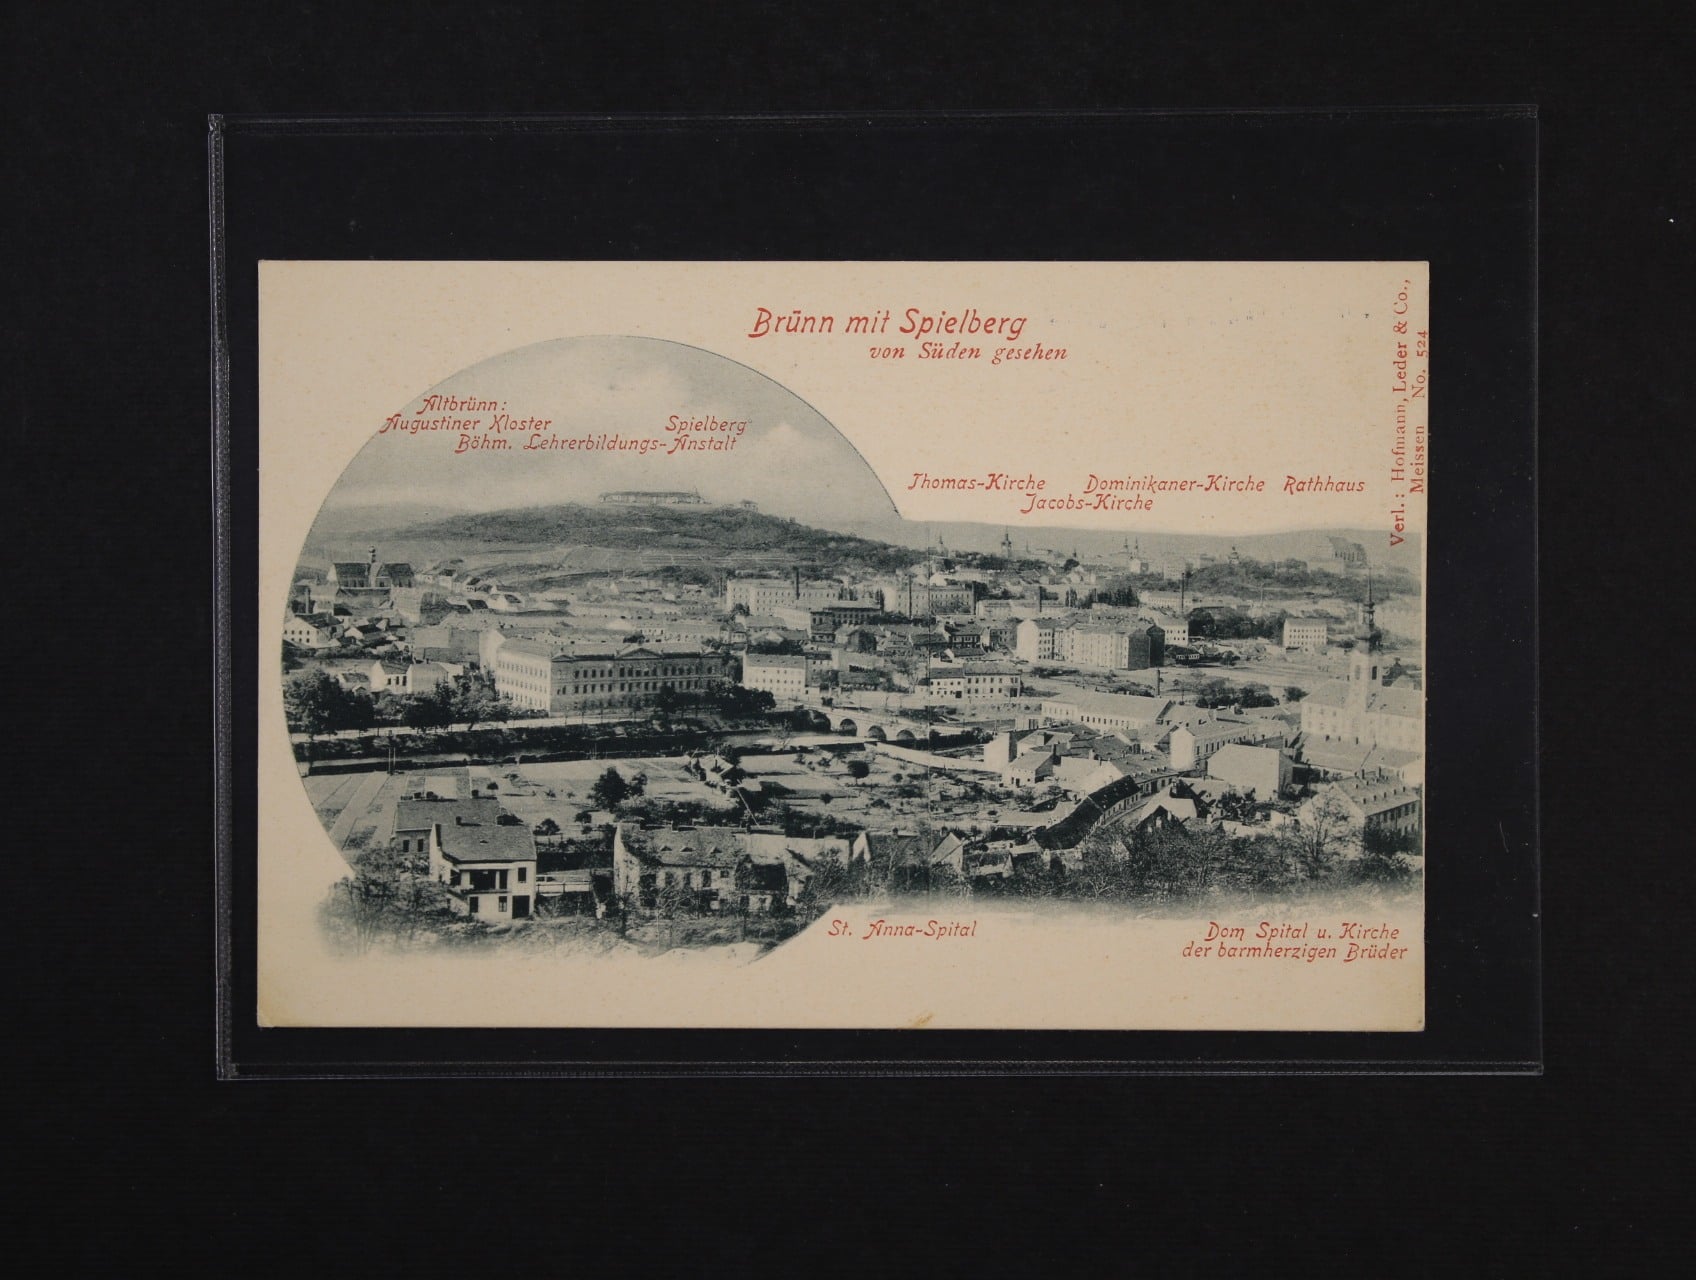 Brünn mit Spielberg
von Süden gesehen
Altbrünn:
Augustiner Kloster Spielberg
Böhm. Lehrerbildungs-Anstalt
Thomas-Kirche Dominikaner-Kirche Rathhaus
Jacobs-Kirche
St. Anna-Spital
Dom Spital u. Kirche
der barmherzigen Brüder
Verl.: Hofmann, Leder & Co.,
Meissen No. 524